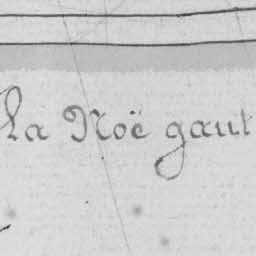 La Noë gaut